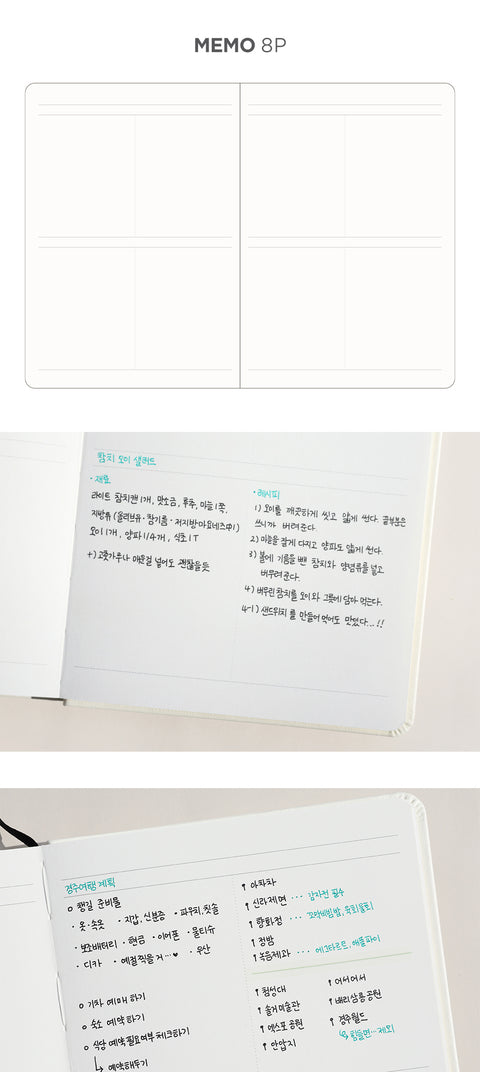 MEMO 8P
참치 오이 샐러드
· 재료
라이트 참치캔 1개, 맛소금, 후추, 마늘 1쪽,
지방류 (올리브유 · 참기름 · 저지방마요네즈中1)
오이 1개, 양파 1/4개, 식초 1T
+) 고춧가루나 매운걸 넣어도 괜찮을듯
· 레시피
1) 오이를 깨끗하게 씻고 얇게 썬다. 끝부분은
쓰니까 버려준다.
2) 마늘을 잘게 다지고 양파도 얇게 썬다.
3) 볼에 기름을 뺀 참치와 양념류를 넣고
버무려준다.
4) 버무린 참치를 오이와 그릇에 담아 먹는다.
4-1) 샌드위치를 만들어 먹어도 맛있다...!!
경주여행 계획
ㅇ 챙길 준비물
· 옷·속옷 · 지갑, 신분증 · 파우치, 칫솔
· 보조배터리 · 현금 · 이어폰 · 물티슈
· 디카 · 예절찍을 거 ...♥ · 우산
ㅇ 기차 예매 하기
ㅇ 숙소 예약 하기
ㅇ 식당 예약 필요여부 체크하기
예약해두기
신라제면 ... 감자전 필수
향화정 ... 꼬막비빔밥, 육회물회
녹음제과 ... 에그타르트, 애플파이
첨성대
솔거미술관
엑스포 공원
안압지
어서어서
배리삼릉공원
경주월드
힘들면... 제외